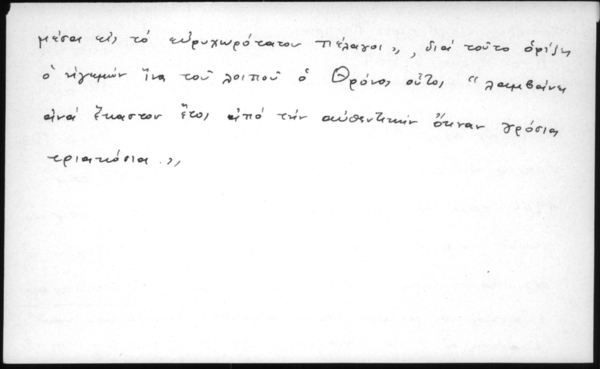 μέσαι εἰς τό εὐρυχωρότατον πέλαγος», διά τοῦτο ὁρίζει
ὁ ἡγεμών ἵνα τοῦ λοιποῦ ὁ Θρόνος οὗτος "λαμβάνῃ
ἀνά ἕκαστον ἔτος ἀπό τήν αὐθεντικήν ὄκναν γρόσια
τριακόσια.»